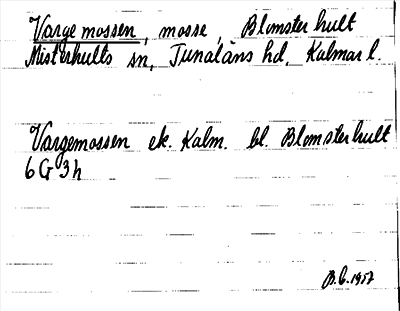 Vargemossen, mosse, Blomsterhult
Misterhults sn, Tunaläns hd, Kalmar l.
Vargemossen ek. Kalm. bl. Blomsterhult
6G3h
B.C. 1957